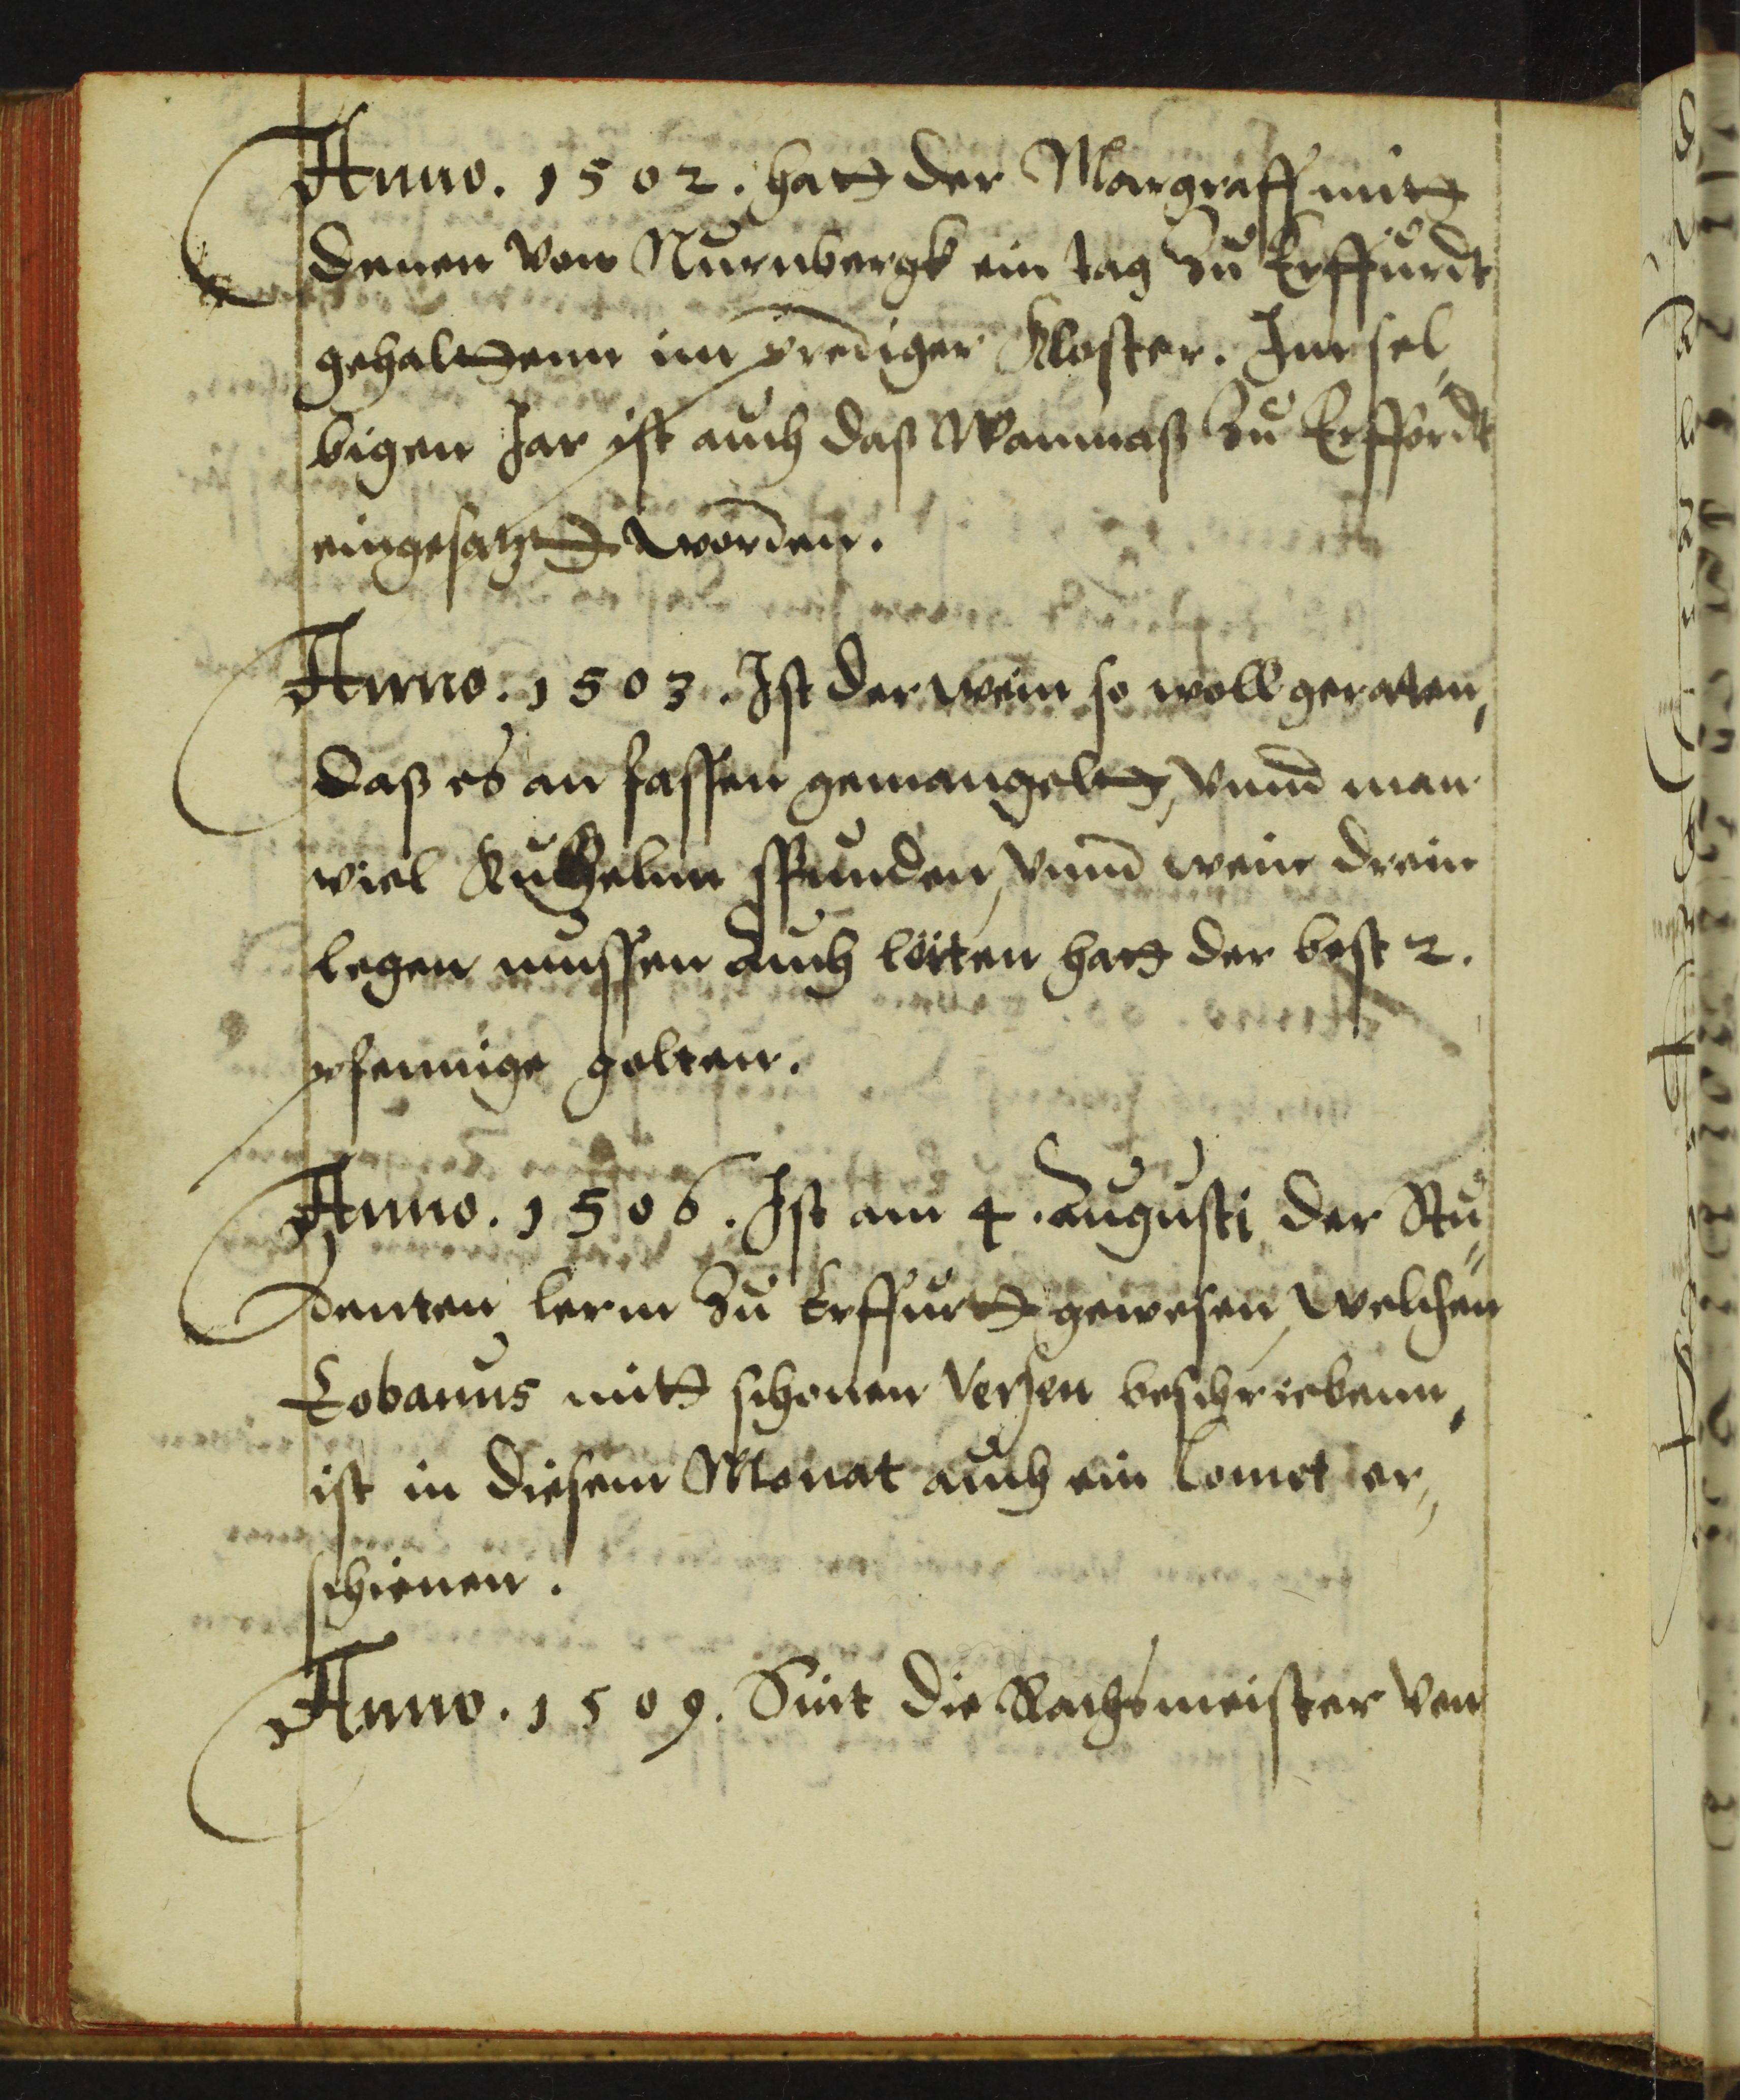 Anno. 1502. hatt der Margraff mitt
denen von Nurnbergk ein tag zu Erffurdt
gehalttenn im prediger Kloster. Im sel„
bigen Jar ist auch daß Wanmaß zu Erffordt
eingesatztt worden.
Anno. 1503. Ist der wein so woll geraten,
daß es an fassen gemangeltt, vnnd man
viel spunden, vnnd wein drein
legen mussen auch hatt der best 2.
pfennige golten.
Anno. 1506. Ist am 4. Augusti der Stu„
denten lerm zu Erffurtt gewesen, welchen
Eobanus mitt schonen Versen beschriebenn,
ist in diesem Monat auch ein Comet er„
schienen.
Anno. 1509. Sint die Rathsmeister von